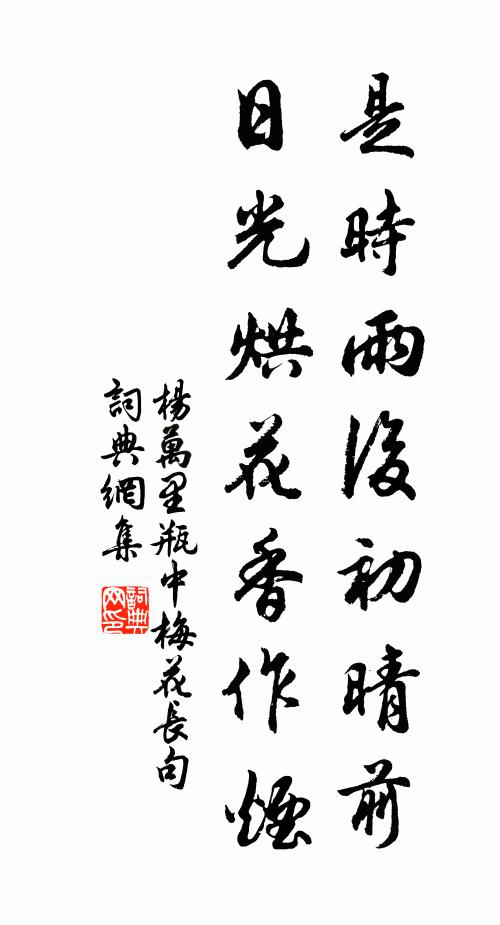 是時雨後初晴前
日光烘花香作煙
楊萬里瓶中梅花長句
詞典網集
詞典网印